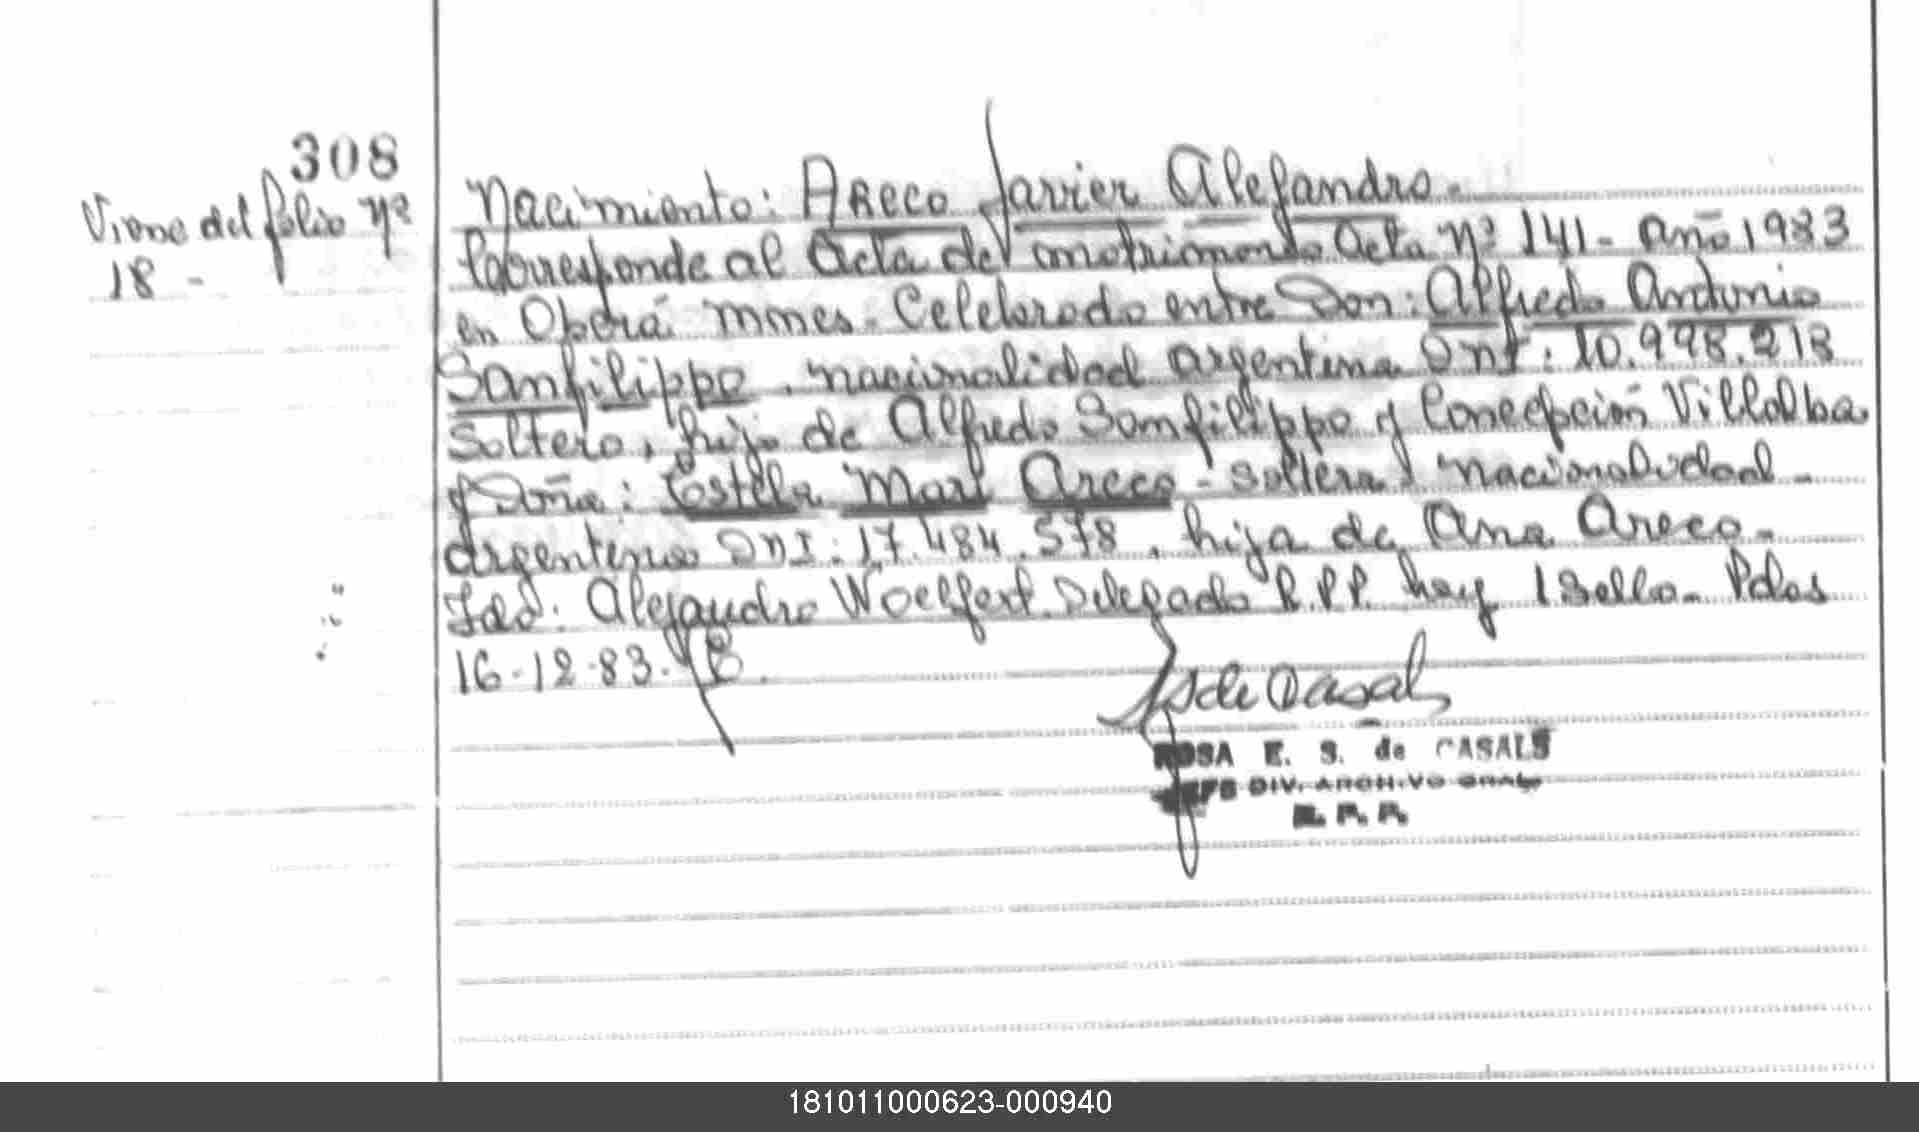 308
Viene del folio nº
18 -
Nacimiento: Areco Javier Alejandro.
Corresponde al Acta de matrimonio Acta Nº 141- año 1983
en Oberá mnes. Celebrado entre Don: Alfredo Antonio
Sanfilippo, nacionalidad argentina DNI: 10.998.218
Soltero, hijo de Alfredo Sanfilippo y Concepción Villalba
y Doña: Estela Mary Areco - soltera nacionalidad -
argentina DNI: 17.484.578, hija de Ana Areco -
Fdo: Alejandro Woelfert Delegado R.P.P. hay 1 Sello - Pdas
16-12-83.
S de Casals
ROSA E. S. de CASALS
JEFE DIV. ARCHIVO GRAL
R. P. P.
181011000623-000940